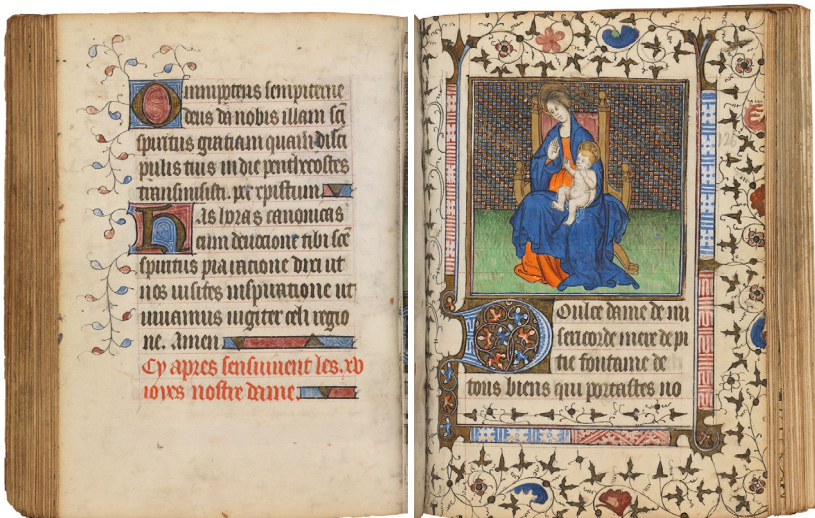 Omnipotens sempiterne
deus da nobis illam sci
spiritus gratiam quam disci
pulis tuis in die penthecostes
transmisisti. per xpistum
Has horas canonicas
cum deuocione tibi sce
spiritus pia racione dixi ut
nos uisites inspiracione ut
uiuamus iugiter celi regio
ne. Amen
Cy apres sensiuuent les .xv
ioyes nostre dame.
Doulce dame de mi
sericorde mere de pi
tie fontaine de
tous biens qui portastes no